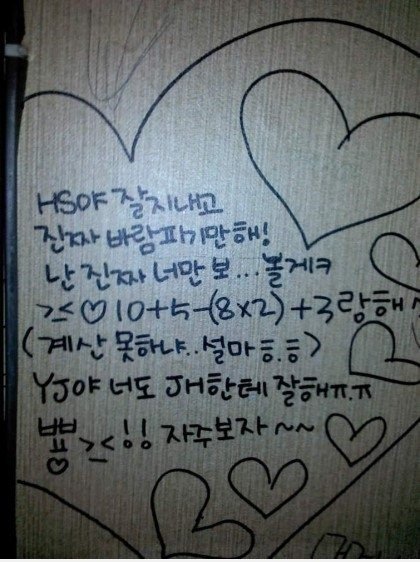 HS야 잘지내고
진짜 바람피기만해!
난 진짜 너만 보...볼게ㅋ
>_< ♡ 10+5-(8×2)+3랑해
(계산 못하냐..설마 ㅎ.ㅎ)
YJ야 너도 JH한테 잘해ㅠ.ㅠ
뾰♡ >_< !! 자주보자 ~~